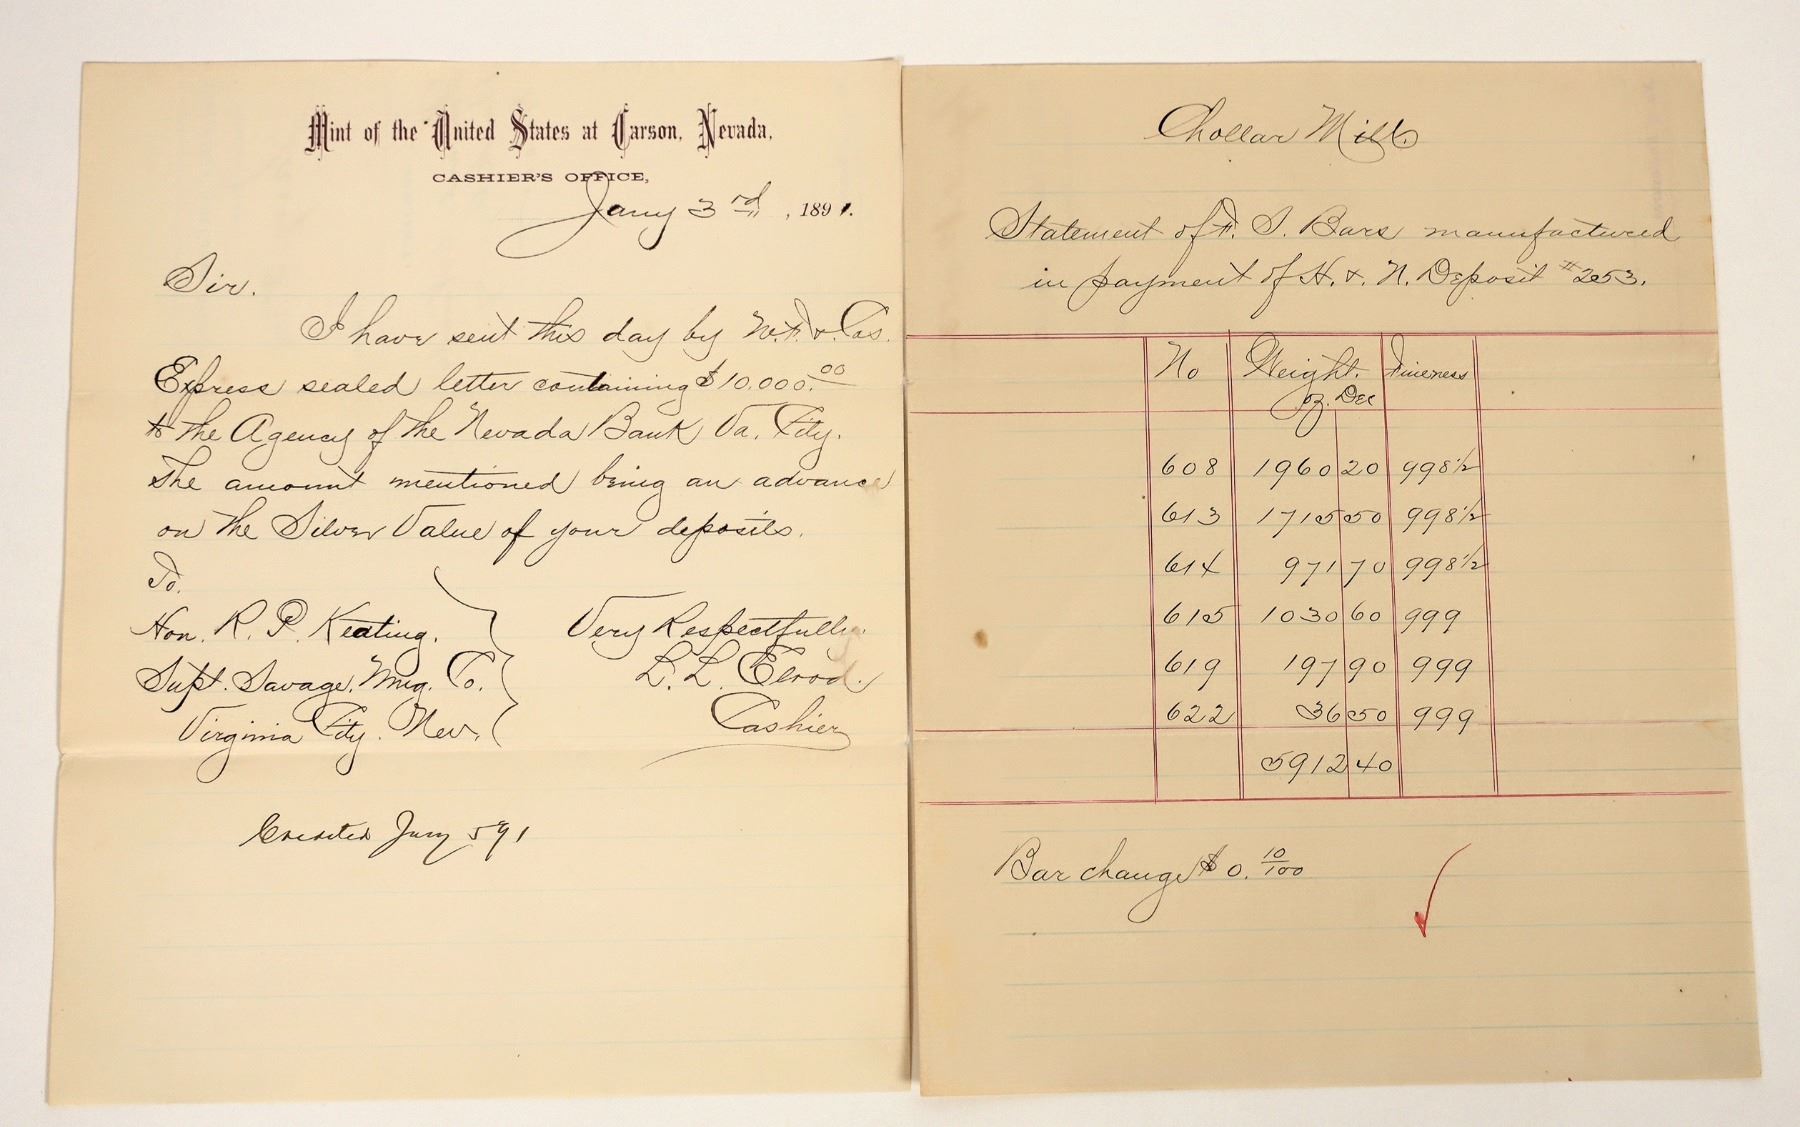 Mint of the United States at Carson, Nevada,
CASHIER'S OFFICE,
Jany 3rd, 1891.
Sir.
I have sent this day by W. F. & Cos.
Express sealed letter containing $10.000.00
to the Agency of the Nevada Bank Va. City.
The amount mentioned being an advance
on the Silver Value of your deposits.
To.
Hon. R. P. Keating.
Supt. Savage. Mng. Co.
Virginia City. Nev.
Very Respectfully.
L. L. Elrod.
Cashier
Credited Jany 5 91
Chollar Mill
Statement of F. S. Bars manufactured
in payment of H. & N. Deposit #253.
No Weight. Fineness
oz. Dec
608 1960 20 998 1/2
613 1715 50 998 1/2
614 971 70 998 1/2
615 1030 60 999
619 197 90 999
622 36 50 999
5912 40
Bar change $0. 10/100